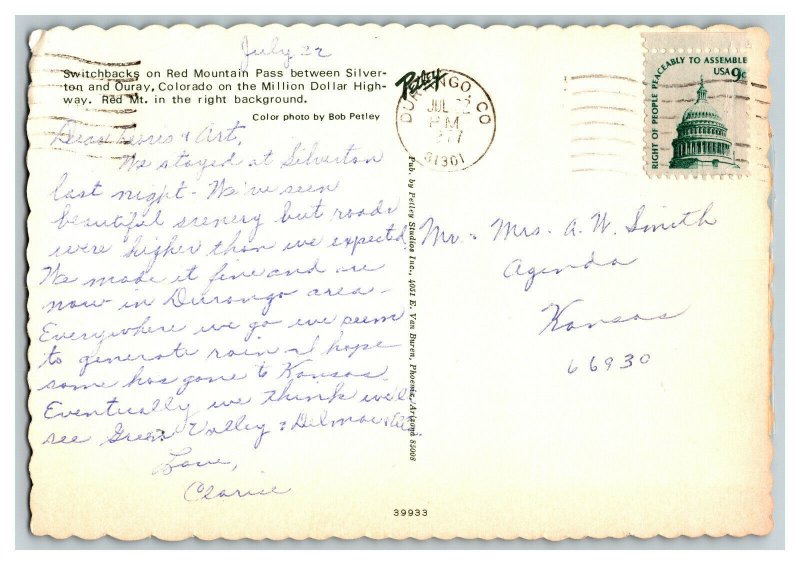 July 22
Switchbacks on Red Mountain Pass between Silver-
ton and Ouray, Colorado on the Million Dollar High-
way. Red Mt. in the right background.
Color photo by Bob Petley
Petley
DURANGO, CO
JUL 22
PM
1977
81301
RIGHT OF PEOPLE PEACEABLY TO ASSEMBLE
USA 9c
& Art,
We stayed at Silverton
last night - We've seen
beautiful scenery but roads
were higher than we expected.
We made it fine and are
now in Durango area -
Everywhere we go we seem
to generate rain - I hope
some has gone to Kansas.
Eventually we think we'll
see Green Valley &
Love,
Clarice
Pub. by Petley Studios Inc., 4051 E. Van Buren, Phoenix, Arizona 85008
Mr. & Mrs. A. W. Smith
Agenda
Kansas
66930
39933